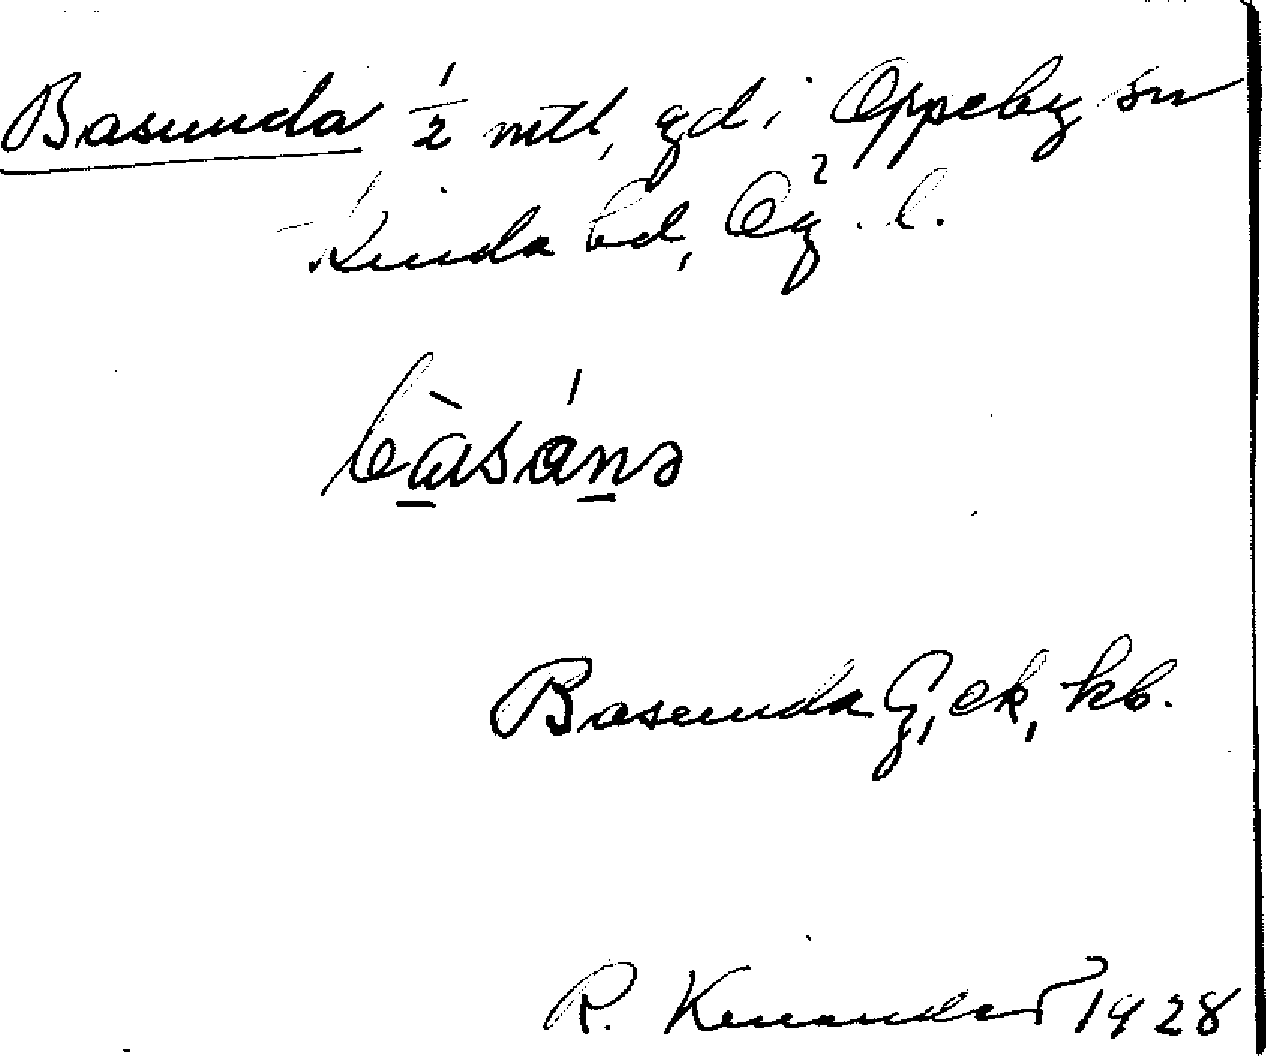 Basunda ½ mtl, gd i Oppeby sn
Kinda hd, Ög. l.
bàsánə
Basunda G, ek, kb.
R. Kenander 1928